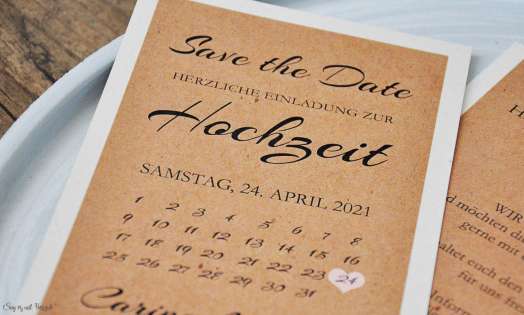 Save the Date
HERZLICHE EINLADUNG ZUR
Hochzeit
SAMSTAG, 24. APRIL 2021
1 2 3 4 5 6 7 8
9 10 11 12 13 14 15 16
17 18 19 20 21 22 23 24
25 26 27 28 29 30 31
WIR
d möchten
gerne mit
altet euch den
für uns
Information